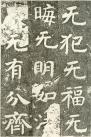 无犯无福无
晦无明如
无有分齊